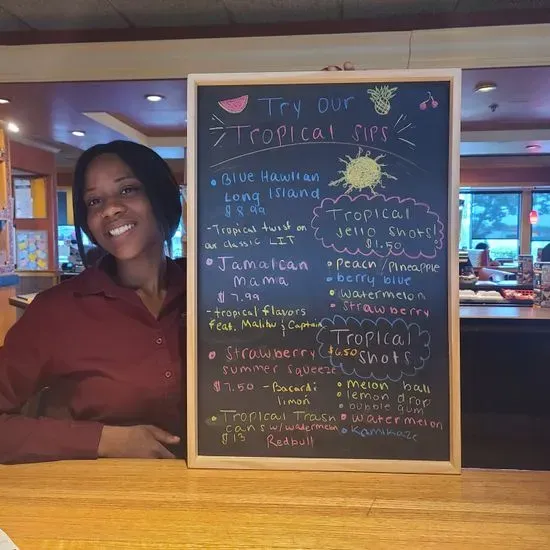 Try our
Tropical Sips
• Blue Hawiian
Long Island
$8.99
-Tropical twist on
our classic LIT
• Jamaican
mama
$7.99
-tropical flavors
feat. Malibu & Captain
• Strawberry
summer squeeze
$7.50 - Bacardi
limón
• Tropical Trash
cans w/ watermelon
$13 Redbull
Tropical
Jello Shots!
$1.50
• Peach/Pineapple
• berry blue
• watermelon
• Strawberry
Tropical
$6.50 Shots
• melon ball
• lemon drop
• bubble gum
• watermelon
• Kamikaze